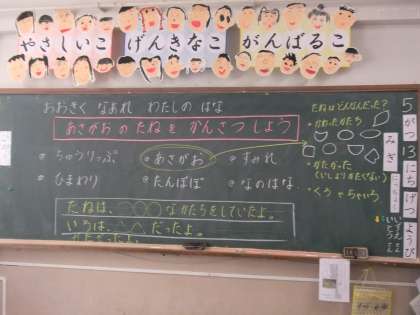 やさしいこ げんきなこ がんばるこ
おおきく なあれ わたしの はな
あさがおのたねをかんさつしよう
・ちゅうりっぷ ・あさがお ・すみれ
・ひまわり ・たんぽぽ ・なのはな
たねは、 なかたちをしていたよ。
いろは、 だったよ。
たねはどんなんだった?
・かたかった
(いしよりかたくない)
・くろ ちゃいろ
みぎ
5がつ13にちげつようび